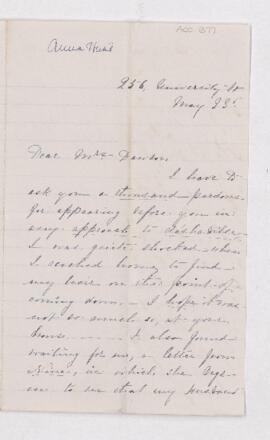 ACC 877
256, University St
May 23d
Dear Mrs Dawson
I have to
ask you a thousand pardons
for appearing before you in
any approach to deshabille.
I was quite shocked when
I reached home, to find
my hair on the point of
coming down — I hope it was
not so much so, at your
house. — — — I also found
waiting for me, a letter from
in which she begs
me to see that my husband